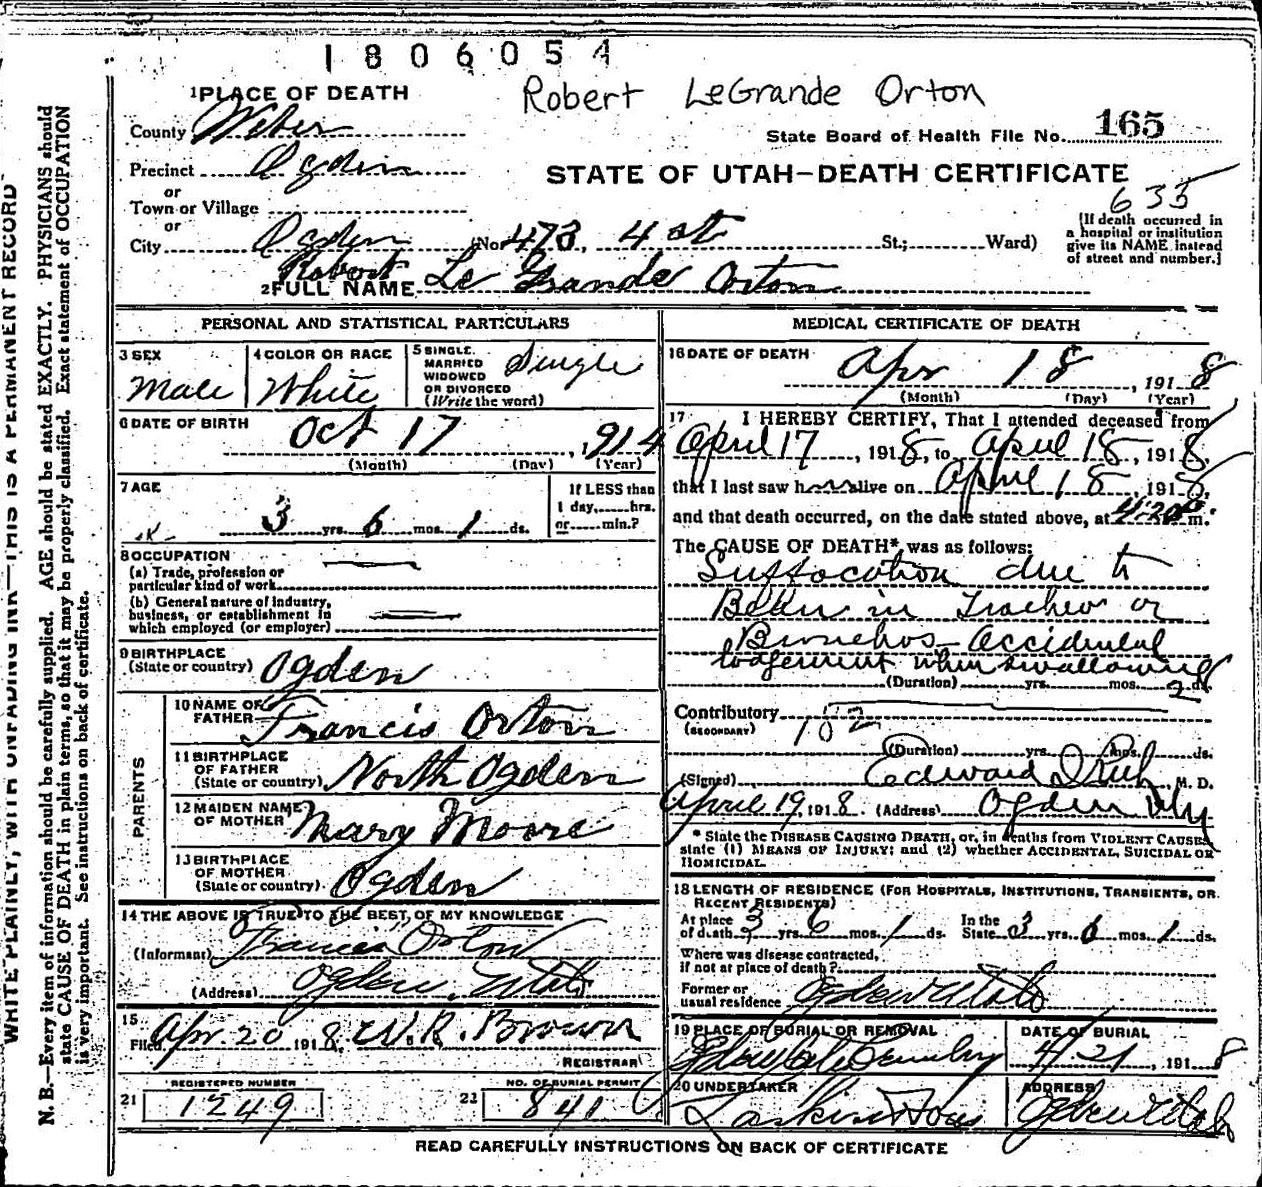 1806054
Robert LeGrande Orton
1 PLACE OF DEATH
County Weber
State Board of Health File No. 165
Precinct Ogden
STATE OF UTAH—DEATH CERTIFICATE
or
Town or Village
635
or
City Ogden (No. 473, 4 st St.; Ward)
[If death occurred in
a hospital or institution
give its NAME instead
of street and number.]
Robert
2 FULL NAME Le Grande Orton
PERSONAL AND STATISTICAL PARTICULARS
3 SEX
Male
4 COLOR OR RACE
White
5 SINGLE,
MARRIED
WIDOWED
OR DIVORCED
(Write the word)
Single
6 DATE OF BIRTH
Oct 17, 1914
(Month) (Day) (Year)
7 AGE
3 yrs. 6 mos. 1 ds.
If LESS than
1 day, hrs.
or min.?
8 OCCUPATION
(a) Trade, profession or
particular kind of work
(b) General nature of industry,
business, or establishment in
which employed (or employer)
9 BIRTHPLACE
(State or country) Ogden
PARENTS
10 NAME OF
FATHER Francis Orton
11 BIRTHPLACE
OF FATHER
(State or country) North Ogden
12 MAIDEN NAME
OF MOTHER Mary Moore
13 BIRTHPLACE
OF MOTHER
(State or country) Ogden
14 THE ABOVE IS TRUE TO THE BEST OF MY KNOWLEDGE
(Informant) Francis Orton
(Address) Ogden, Utah
15
Filed Apr. 20 1918. W. R. Brown
REGISTRAR
21 REGISTERED NUMBER
1249
22 NO. OF BURIAL PERMIT
841
MEDICAL CERTIFICATE OF DEATH
16 DATE OF DEATH
Apr 18, 1918
(Month) (Day) (Year)
17 I HEREBY CERTIFY, That I attended deceased from
April 17, 1918, to April 18, 1918,
that I last saw him alive on April 18, 1918,
and that death occurred, on the date stated above, at 4:20 P m.
The CAUSE OF DEATH* was as follows:
Suffocation due to
Bean in Trachea or
Bronchos Accidental
lodgement when swallowing
(Duration) yrs. mos. 2 ds.
Contributory
(SECONDARY) 102
(Duration) yrs. mos. ds.
(Signed) Edward I Rich M. D.
April 19, 1918. (Address) Ogden
* State the DISEASE CAUSING DEATH, or, in deaths from VIOLENT CAUSES,
state (1) MEANS OF INJURY; and (2) whether ACCIDENTAL, SUICIDAL OR
HOMICIDAL.
18 LENGTH OF RESIDENCE (FOR HOSPITALS, INSTITUTIONS, TRANSIENTS, OR
RECENT RESIDENTS)
At place
of death 3 yrs. 6 mos. 1 ds.
In the
State 3 yrs. 6 mos. 1 ds.
Where was disease contracted,
if not at place of death?
Former or
usual residence Ogden Utah
19 PLACE OF BURIAL OR REMOVAL
Ogden City Cemetery
DATE OF BURIAL
4/21, 1918
20 UNDERTAKER
Larkin & Sons
ADDRESS
Ogden Utah
READ CAREFULLY INSTRUCTIONS ON BACK OF CERTIFICATE
WRITE PLAINLY, WITH UNFADING INK—THIS IS A PERMANENT RECORD
N. B.—Every item of information should be carefully supplied. AGE should be stated EXACTLY. PHYSICIANS should
state CAUSE OF DEATH in plain terms, so that it may be properly classified. Exact statement of OCCUPATION
is very important. See instructions on back of certificate.